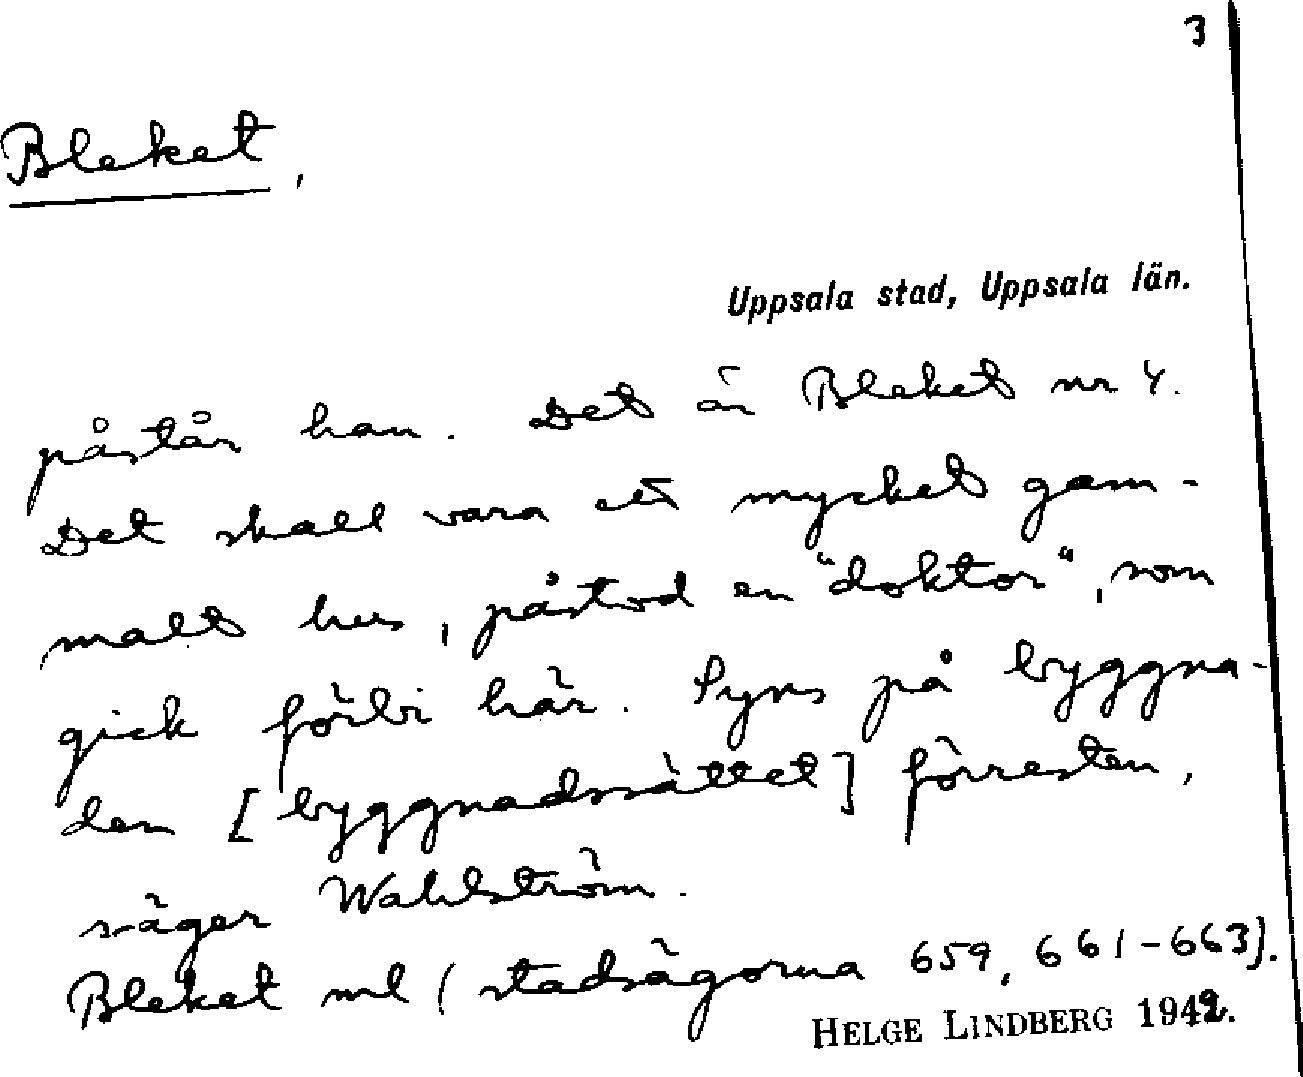 3
Bleket,
Uppsala stad, Uppsala län.
påstår han. Det är Bleket nr 4.
Det skall vara ett mycket gam-
malt hus, påstod en "doktor", som
gick förbi här. Syns på byggna-
den [byggnadssättet] förresten,
säger Wahlström.
Bleket ml (stadsägorna 659, 661-663).
HELGE LINDBERG 1942.